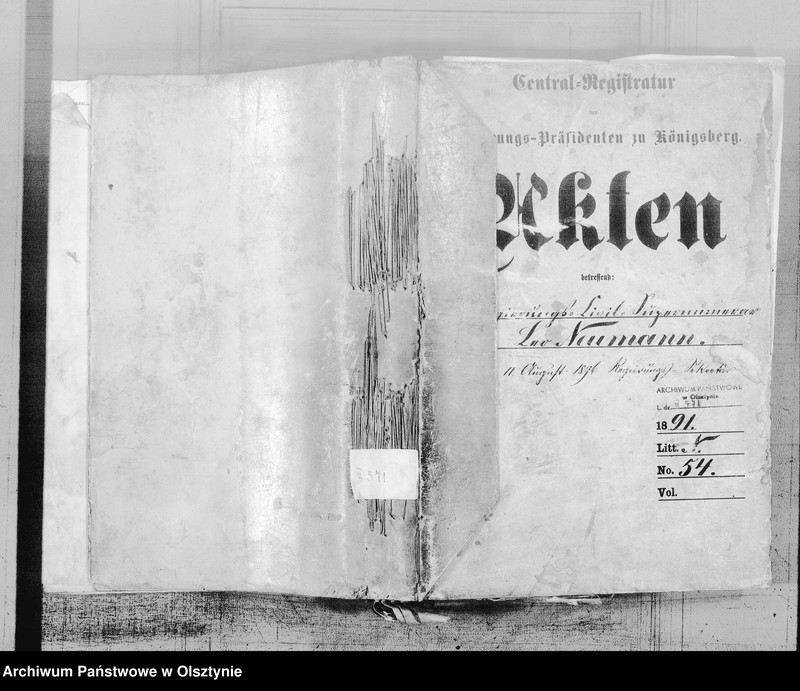 Central-Registratur
ungs-Präsidenten zu Königsberg.
Akten
betreffend:
gierungs-Civil-Supernumerar
Leo Neumann.
11 August 1896 Regierungs-Sekretär
ARCHIWUM PAŃSTWOWE
w Olsztynie
L. dz.
1891.
Litt. N.
No. 54.
Vol.
571
Archiwum Państwowe w Olsztynie